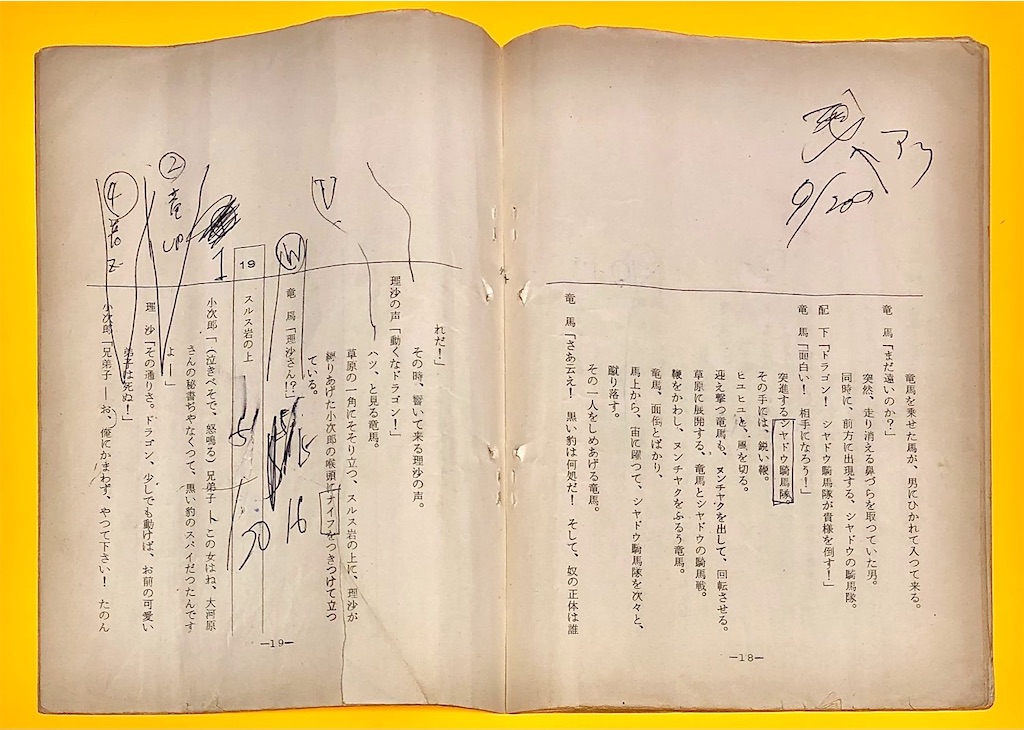 竜馬を乗せた馬が、男にひかれて入つて来る。
竜　馬「まだ遠いのか？」
突然、走り消える鼻づらを取つていた男。
同時に、前方に出現する、シャドウの騎馬隊。
配　下「ドラゴン！　シャドウ騎馬隊が貴様を倒す！」
竜　馬「面白い！　相手になろう！」
突進するシャドウ騎馬隊。
その手には、鋭い鞭。
ヒユヒユと、風を切る。
迎え撃つ竜馬も、ヌンチャクを出して、回転させる。
草原に展開する、竜馬とシャドウの騎馬戦。
鞭をかわし、ヌンチャクをふるう竜馬。
竜馬、面倒とばかり、
馬上から、宙に躍つて、シャドウ騎馬隊を次々と、
蹴り落す。
その一人をしめあげる竜馬。
竜　馬「さあ云え！　黒い豹は何処だ！　そして、奴の正体は誰
—18—
9/20
れだ！」
その時、響いて来る理沙の声。
理沙の声「動くなドラゴン！」
ハツ、と見る竜馬。
草原の一角にそそり立つ、スルス岩の上に、理沙が
縛りあげた小次郎の喉頭にナイフをつきつけて立つ
ている。
竜　馬「理沙さん！？」
19　スルス岩の上
小次郎「（泣きべそで、怒鳴る）兄弟子—この女はね、大河原
さんの秘書ぢやなくつて、黒い豹のスパイだつたんです
よ—」
理　沙「その通りさ。ドラゴン、少しでも動けば、お前の可愛い
弟子は死ぬ！」
小次郎「兄弟子—お、俺にかまわず、やつて下さい！　たのん
—19—
W
1
②
竜
UP
④
15
16